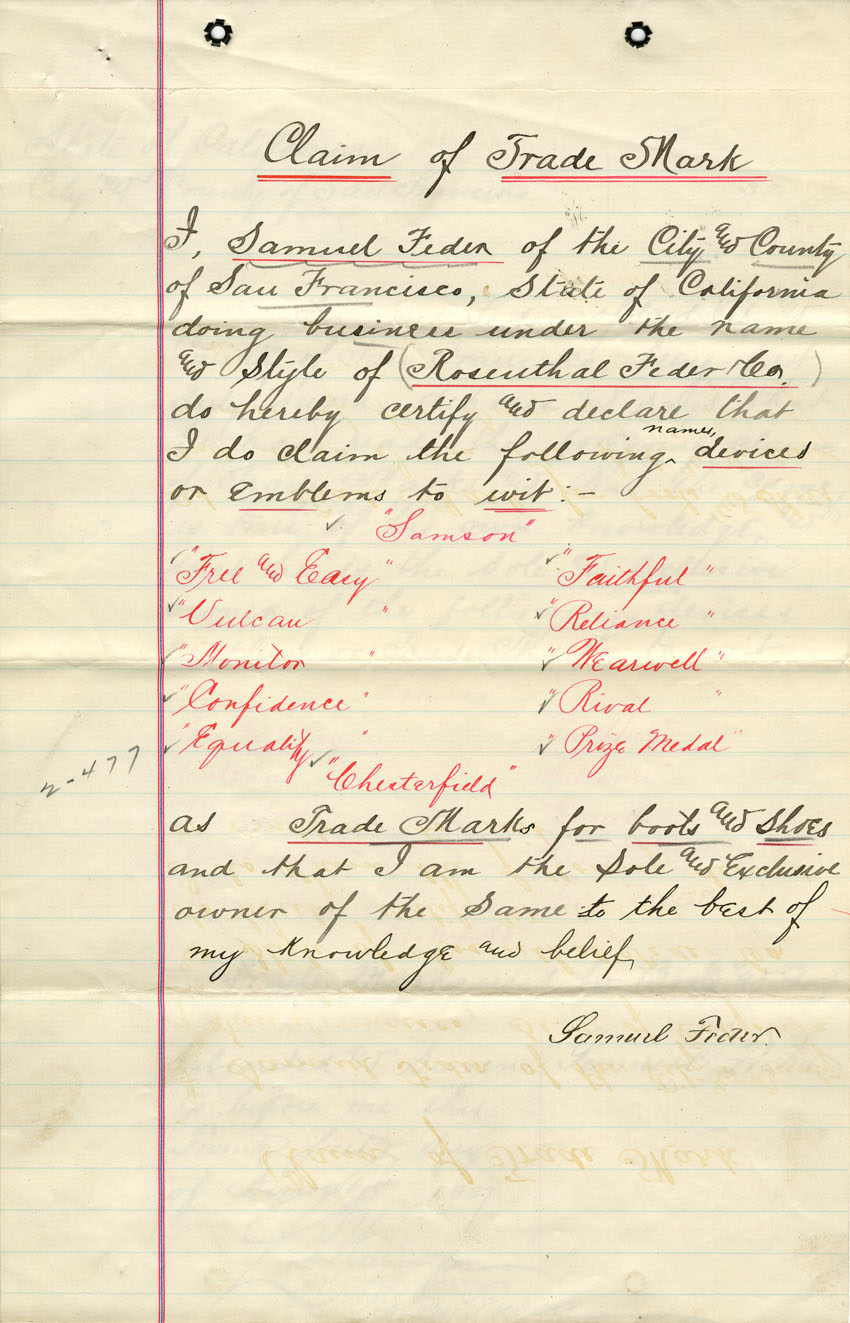 Claim of Trade Mark
I, Samuel Feder of the City and County
of San Francisco, State of California
doing business under the name
and Style of (Rosenthal Feder & Co.)
do hereby certify and declare that
names,
I do claim the following ‸ devices
or Emblems to wit:-
"Samson"
"Free and Easy" "Faithful"
"Vulcan" "Reliance"
"Monitor" "Wearwell"
"Confidence" "Rival"
"Equality" "Prize Medal"
2-477
"Chesterfield"
as Trade Marks for boots and Shoes
and that I am the Sole and Exclusive
owner of the Same to the best of
my Knowledge and belief
Samuel Feder.